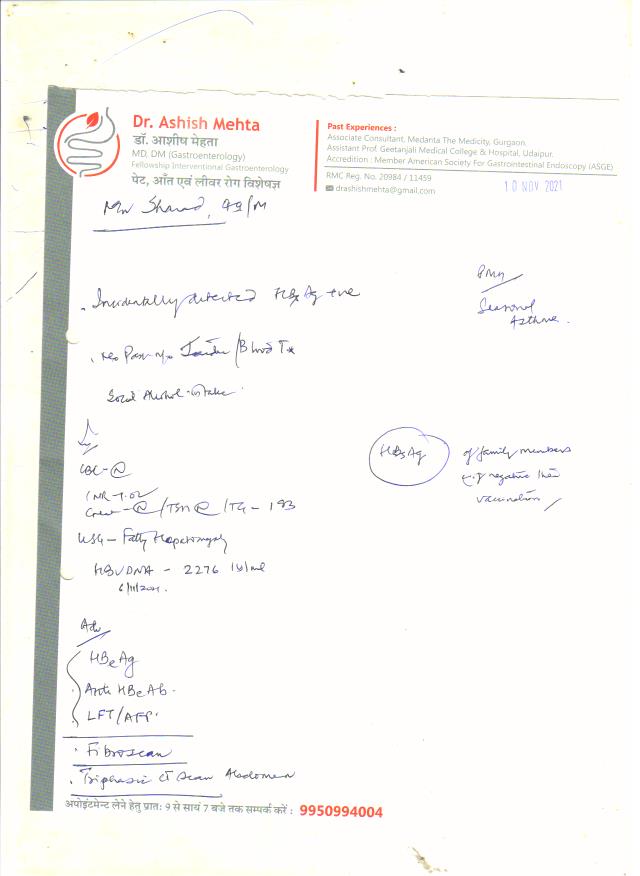 Dr. Ashish Mehta
डॉ. आशीष मेहता
MD, DM (Gastroenterology)
Fellowship Interventional Gastroenterology
पेट, आँत एवं लीवर रोग विशेषज्ञ
Past Experiences :
Associate Consultant, Medanta The Medicity, Gurgaon.
Assistant Prof. Geetanjali Medical College & Hospital, Udaipur.
Accreditation : Member American Society For Gastrointestinal Endoscopy (ASGE)
RMC Reg. No. 20984 / 11459
drashishmehta@gmail.com
10 NOV 2021
/M
. Incidentally detected HBsAg +ve
Seasonal
Asthma.
/Blood Tx
Social Alcohol intake
CBC - N
INR - 1.02
Creat - N / TSH N / TG - 193
USG - Fatty Hepatomegaly
HBVDNA - 2276 IU/ml
6/11/2021.
HBsAg
of family members
if negative then
vaccination
Adv
HBeAg
Anti HBeAb.
LFT/AFP.
. Fibroscan
. Triphasic CT Scan Abdomen
अपोइंटमेन्ट लेने हेतु प्रातः 9 से सायं 7 बजे तक सम्पर्क करें : 9950994004